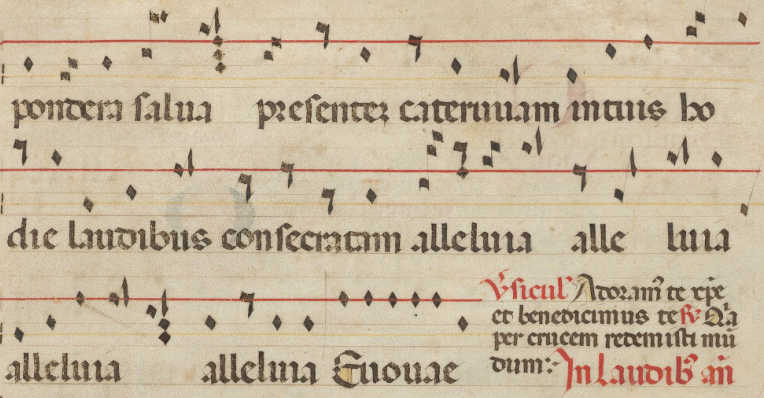 pondera salua presentez cateruuam intuis ho
die laudibus consecratam alleluia alle luia
alleluia alleluia Euouae
V̓sicul̓ Adoram̄ te xp̄e
et benedicimus te R̓ Q̓a
per crucem redemisti mū
dum: In laudib̓ an̄